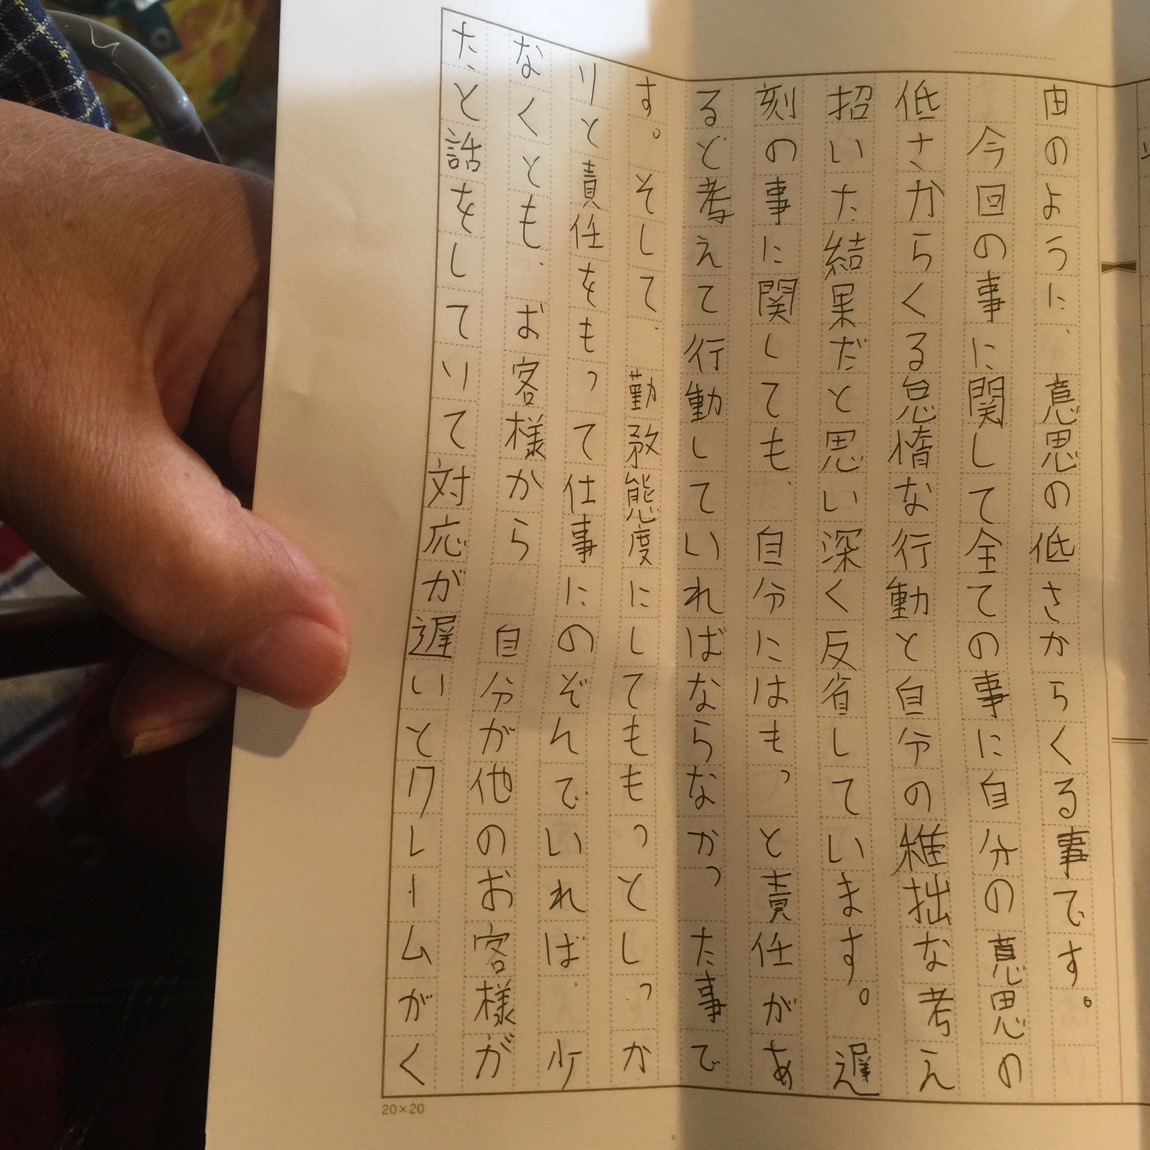 由のように、意思の低さからくる事です。
今回の事に関して全ての事に自分の意思の
低さからくる怠惰な行動と自分の稚拙な考え
招いた結果だと思い深く反省しています。遅
刻の事に関しても、自分にはもっと責任があ
ると考えて行動していればならなかった事で
す。そして、勤務態度にしてももっとしっか
りと責任をもって仕事にのぞんでいれば、少
なくとも、お客様から自分が他のお客様が
たと話をしていて対応が遅いとクレームがく
20×20